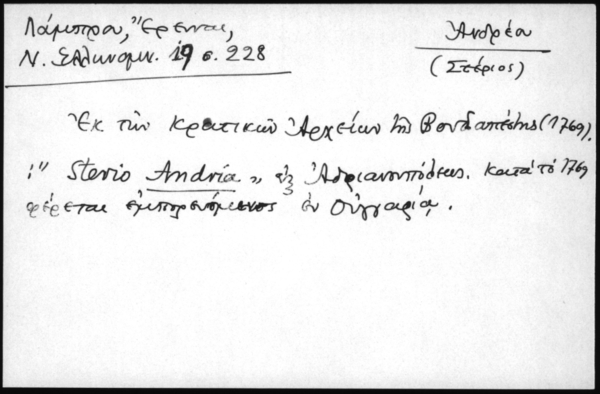 Λάμπρου, Ἔρευναι,
Ν. Ἑλληνομν. 19 σ. 228
Ἀνδρέου
(Στέριος)
Ἐκ τῶν κρατικῶν Ἀρχείων τῆς Βουδαπέστης (1769).
:" Sterio Andria „ ἐξ Ἀδριανουπόλεως. κατὰ τὸ 1769
φέρεται ἐμπορευόμενος ἐν Οὑγγαρίᾳ.